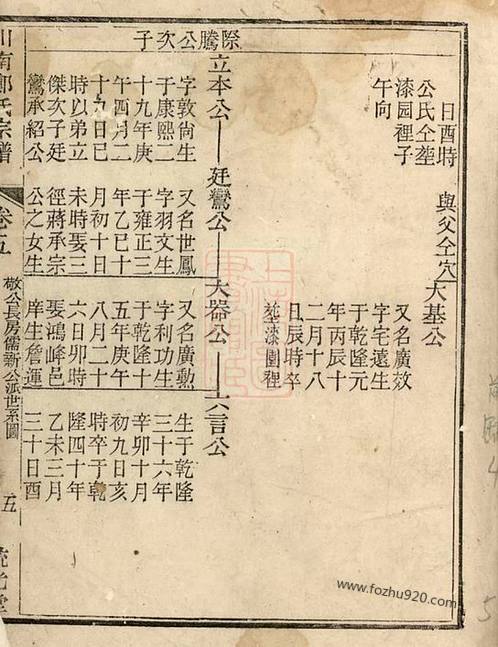 日酉時
公氏仝塟
漆园裡子
午向
與父仝穴
大基公
又名廣效
字宅遠生
于乾隆元
年丙辰十
二月十八
丑辰時卒
塟漆園裡
際騰公次子
立本公
廷鸞公
大器公
六言公
字敦尙生
于康熙二
十九年庚
午四月二
十九日巳
時以弟立
傑次子廷
鸞承紹公
又名世鳳
字羽文生
于雍正三
年乙巳十
月初十日
未時娶三
徑蔣承宗
公之女生
又名廣勳
字利功生
于乾隆十
五年庚午
八月二十
六日卯時
娶鴻峰邑
庠生詹運
生于乾隆
三十六年
辛卯十月
初九日亥
時卒于乾
隆四十年
乙未三月
三十日酉
川南鄭氏宗譜
卷五
敬公長房儒新公派世系圖
五
www.fozhu920.com
4
5